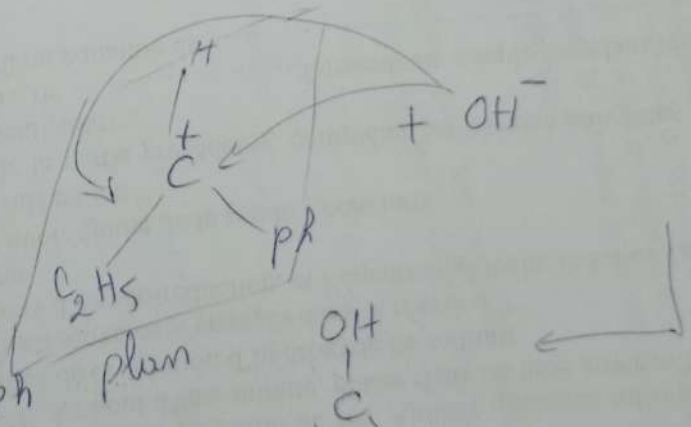 H
+
C
+ OH⁻
C₂H₅
ph
ph
plan
OH
C